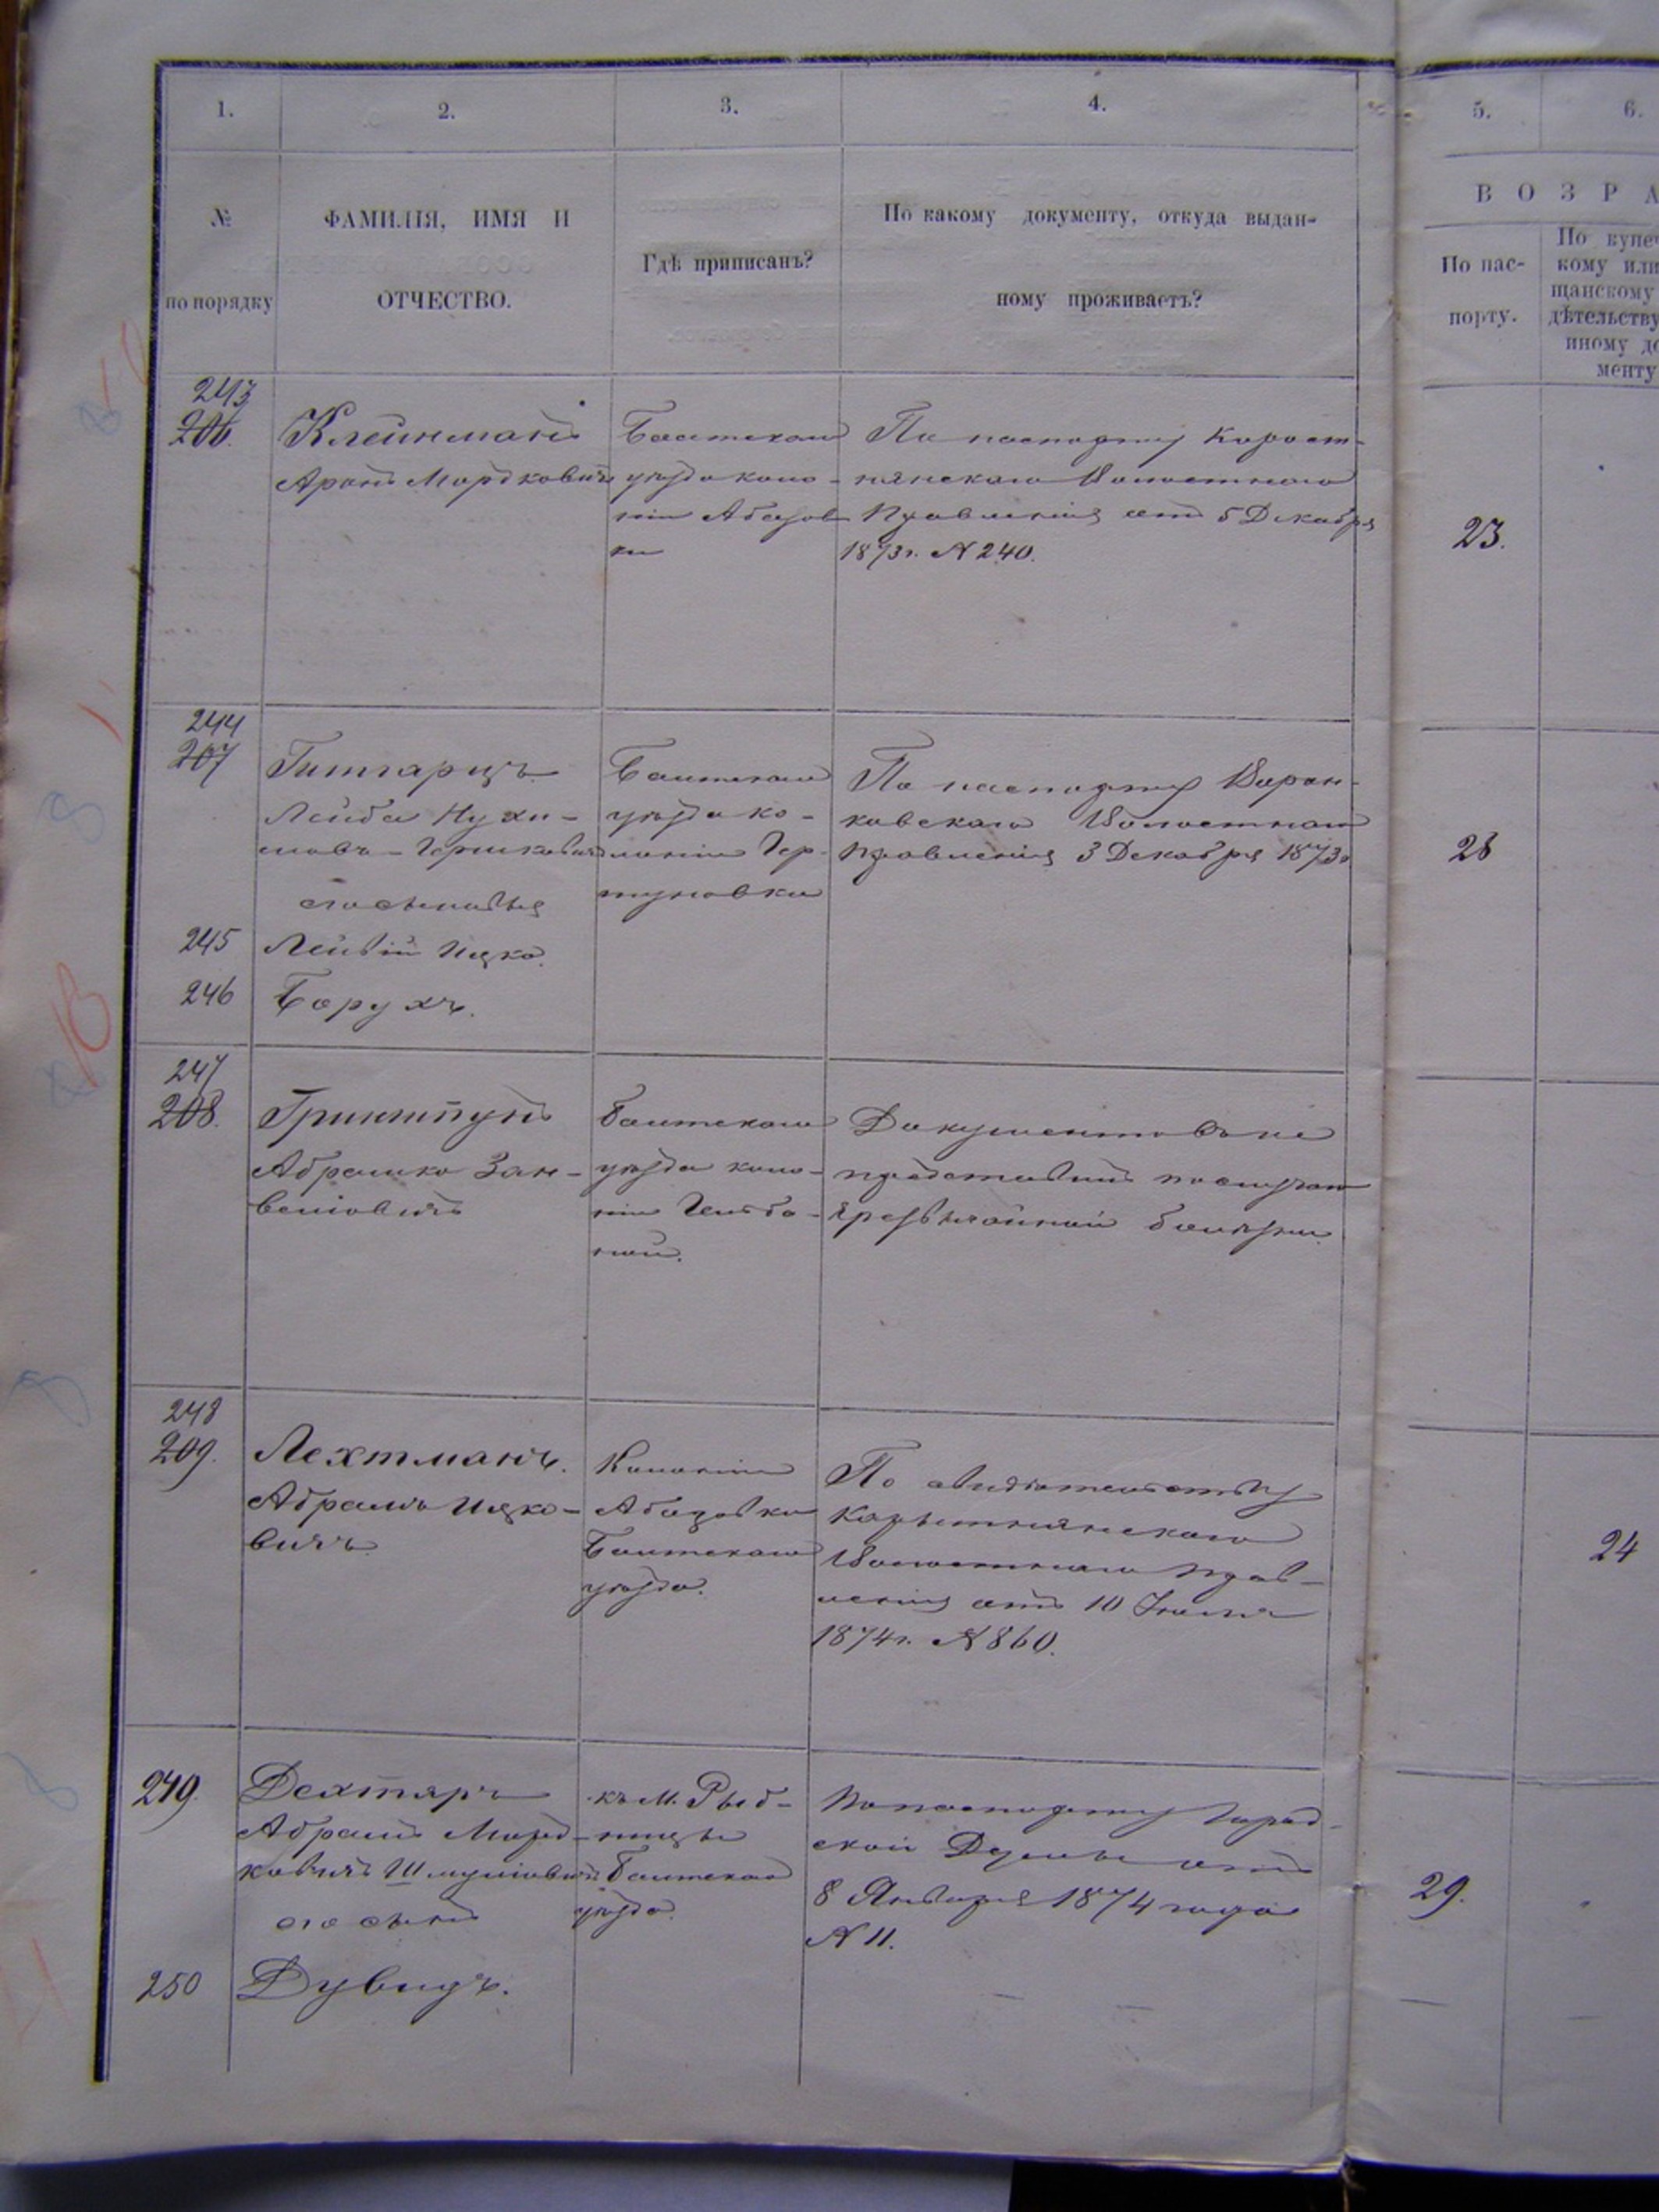 1.
2.
3.
4.
5.
6.
№
по порядку
ФАМИЛІЯ, ИМЯ И
ОТЧЕСТВО.
Гдѣ приписанъ?
По какому документу, откуда выдан-
ному проживаетъ?
ВОЗРА
По пас-
порту.
По купеч
кому или
щанскому
дѣтельству
иному до
менту
243
206.
Клейнманъ
Аронъ Мордковичъ
Балтскаго
уѣзда коло-
ніи Абазов
ки
По паспорту Корот-
нянскаго Волостнаго
Правленія отъ 5 Декабря
1873г. № 240.
23.
244
207
Гитгарцъ
Лейба Нухи-
мовъ-Гершковичъ
его сыновья
245
Лейвій Ицко.
246
Борухъ.
Балтскаго
уѣзда ко-
лоніи Гер-
туновки
По паспорту Ворон-
ковскаго Волостнаго
Правленія 3 Декабря 1873г
28
247
208.
Гринштунъ
Абрамко Зан-
веліовичъ
Балтскаго
уѣзда коло-
ніи
ной.
Документовъ не
представилъ по случаю
чрезвычайной болѣзни.
248
209.
Лехтманъ.
Абрамъ Ицко-
вичъ
Колоніи
Абазовки
Балтскаго
уѣзда.
По свидѣтельству
Волостнаго Прав-
ленія отъ 10
1874г. № 860.
24
249.
Дехтяръ
Абрамъ Морд-
ковичъ Шмуліовичъ
его сынъ
250
Дувидъ.
къ М. Рыб-
ницѣ
Балтскаго
уѣзда.
По паспорту Город-
ской Думы отъ
8 Января 1874 года
№ 11.
29.